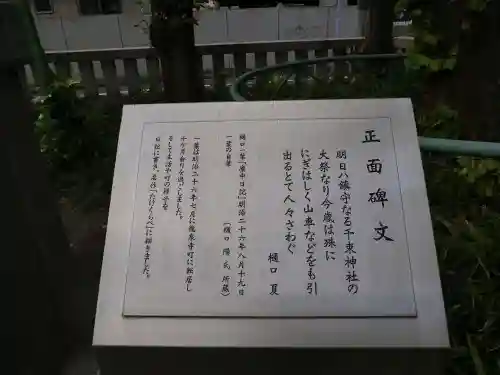 正面碑文
明日ハ鎮守なる千束神社の
大祭なり今歳は殊に
にぎはしく山車などをも引
出るとて人々さわぐ
樋口 夏
樋口一葉「塵中日記」明治二十六年八月十九日
一葉の自筆
(樋口 陽氏 所蔵)
一葉は明治二十六年七月に龍泉寺町に転居し
十ケ月余りを過ごしました。
そして生活や町の様子を
日記に書き、名作「たけくらべ」に描きました。